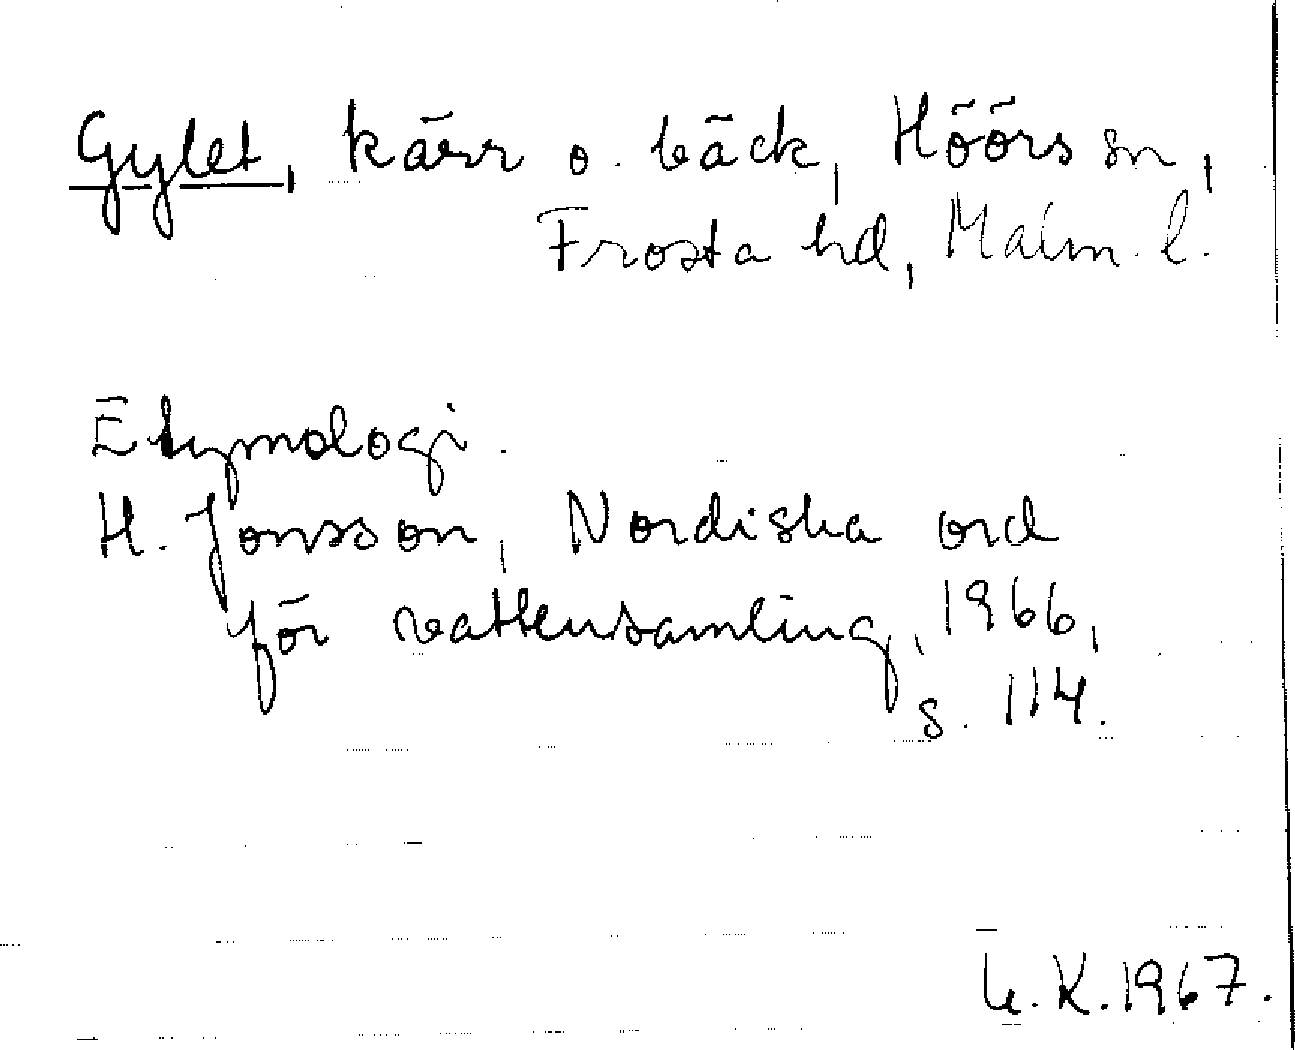 Gylet, kärr o. bäck, Höörs sn,
Frosta hd, Malm. l.
Etymologi.
H. Jonsson, Nordiska ord
för vattensamling, 1966,
s. 114.
K. 1967.